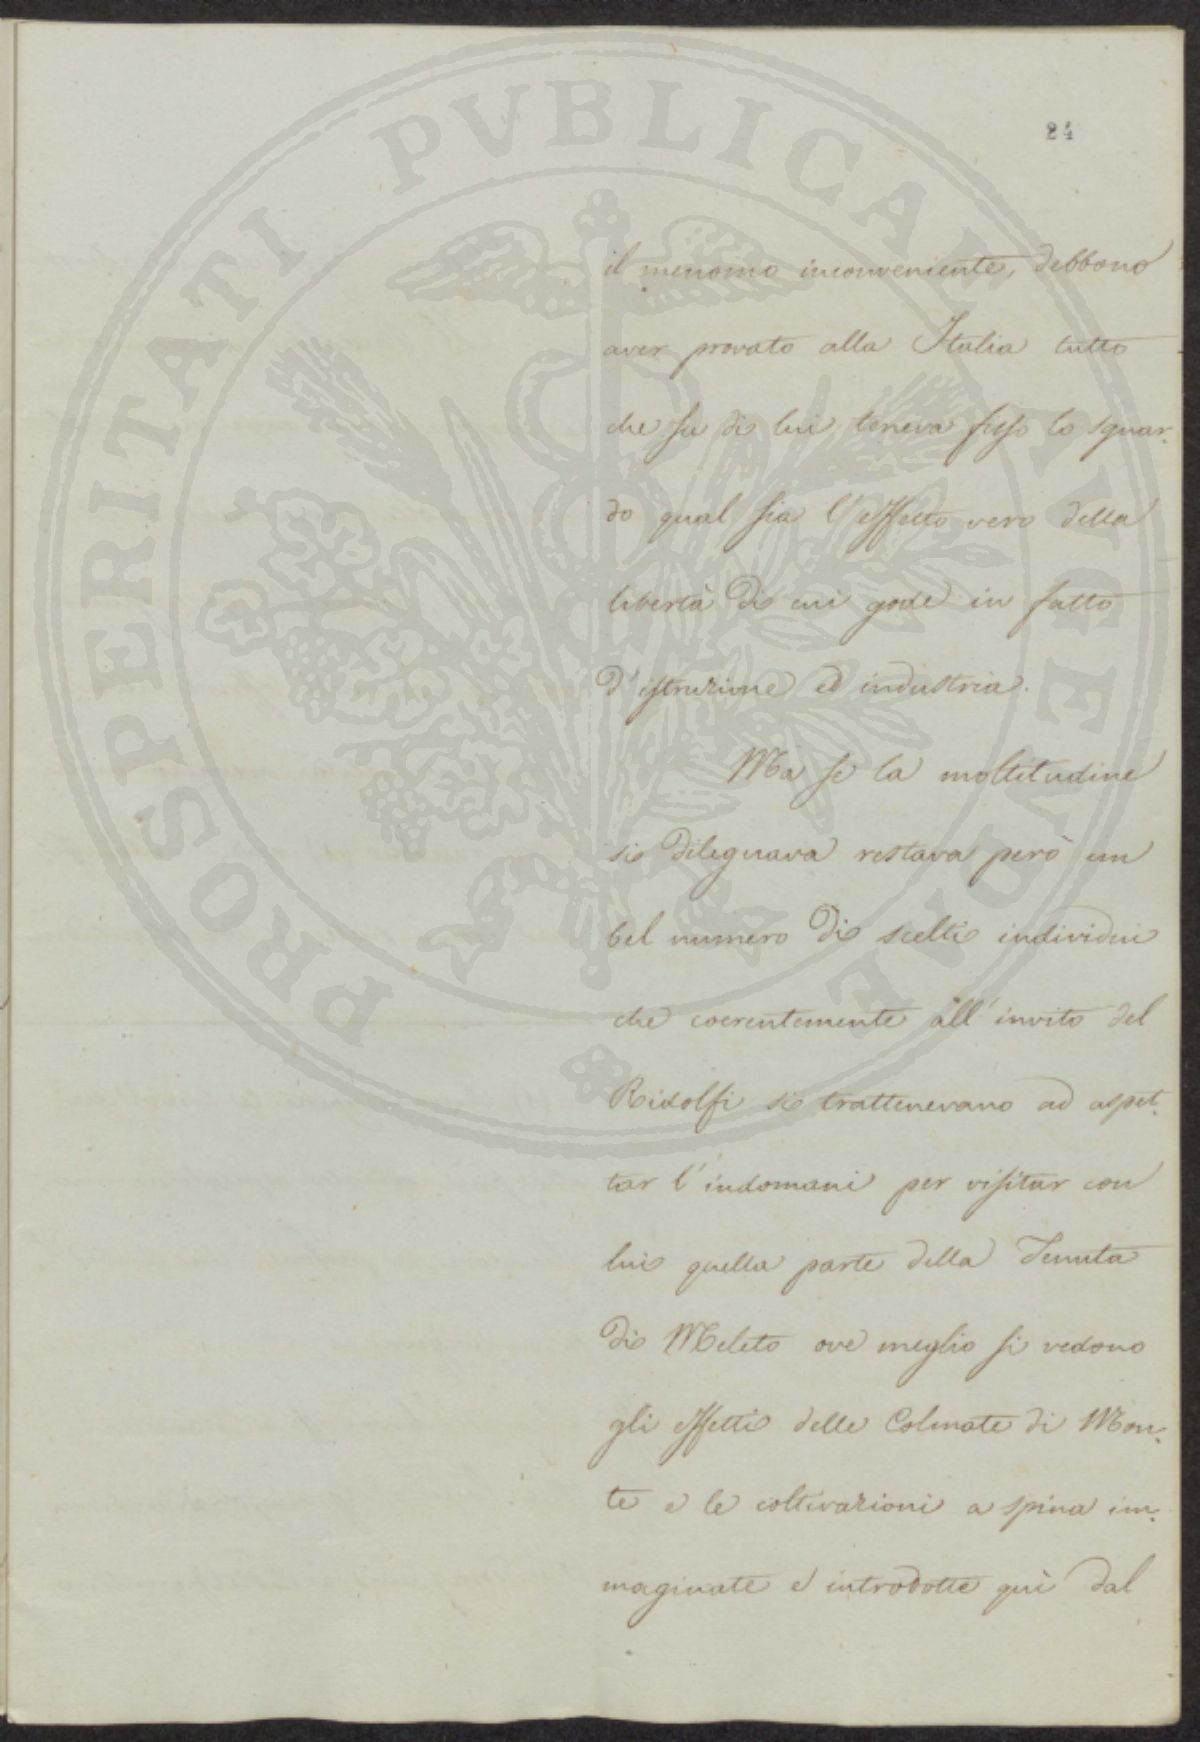 PROSPERITATI PVBLICAE AVGENDAE
84
il menomo inconveniente, debbono
aver provato alla Italia tutto
che su di lui teneva fisso lo sguar-
do qual sia l'effetto vero della
libertà di cui gode in fatto
d'istruzione ed industria.
Ma se la moltitudine
si dileguava restava però un
bel numero di scelti individui
che coerentemente all'invito del
Ridolfi si trattenevano ad aspet-
tar l'indomani per visitar con
lui quella parte della Tenuta
di Meleto ove meglio si vedono
gli effetti delle Colmate di Mon-
te e le coltivazioni a spina im-
maginate e introdotte quì dal